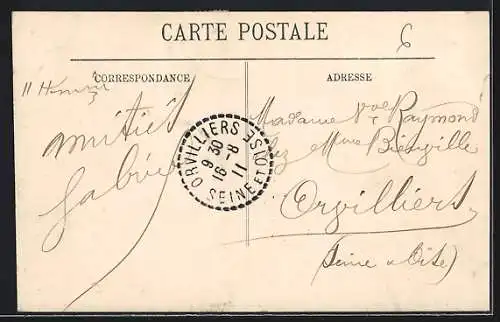 CARTE POSTALE
6
CORRESPONDANCE
ADRESSE
11
amitiés
Madame Vve Raymond
chez Mme Bienville
Orvilliers
(Seine & Oise)
ORVILLIERS
9 30
16 - 8
11
SEINE ET OISE